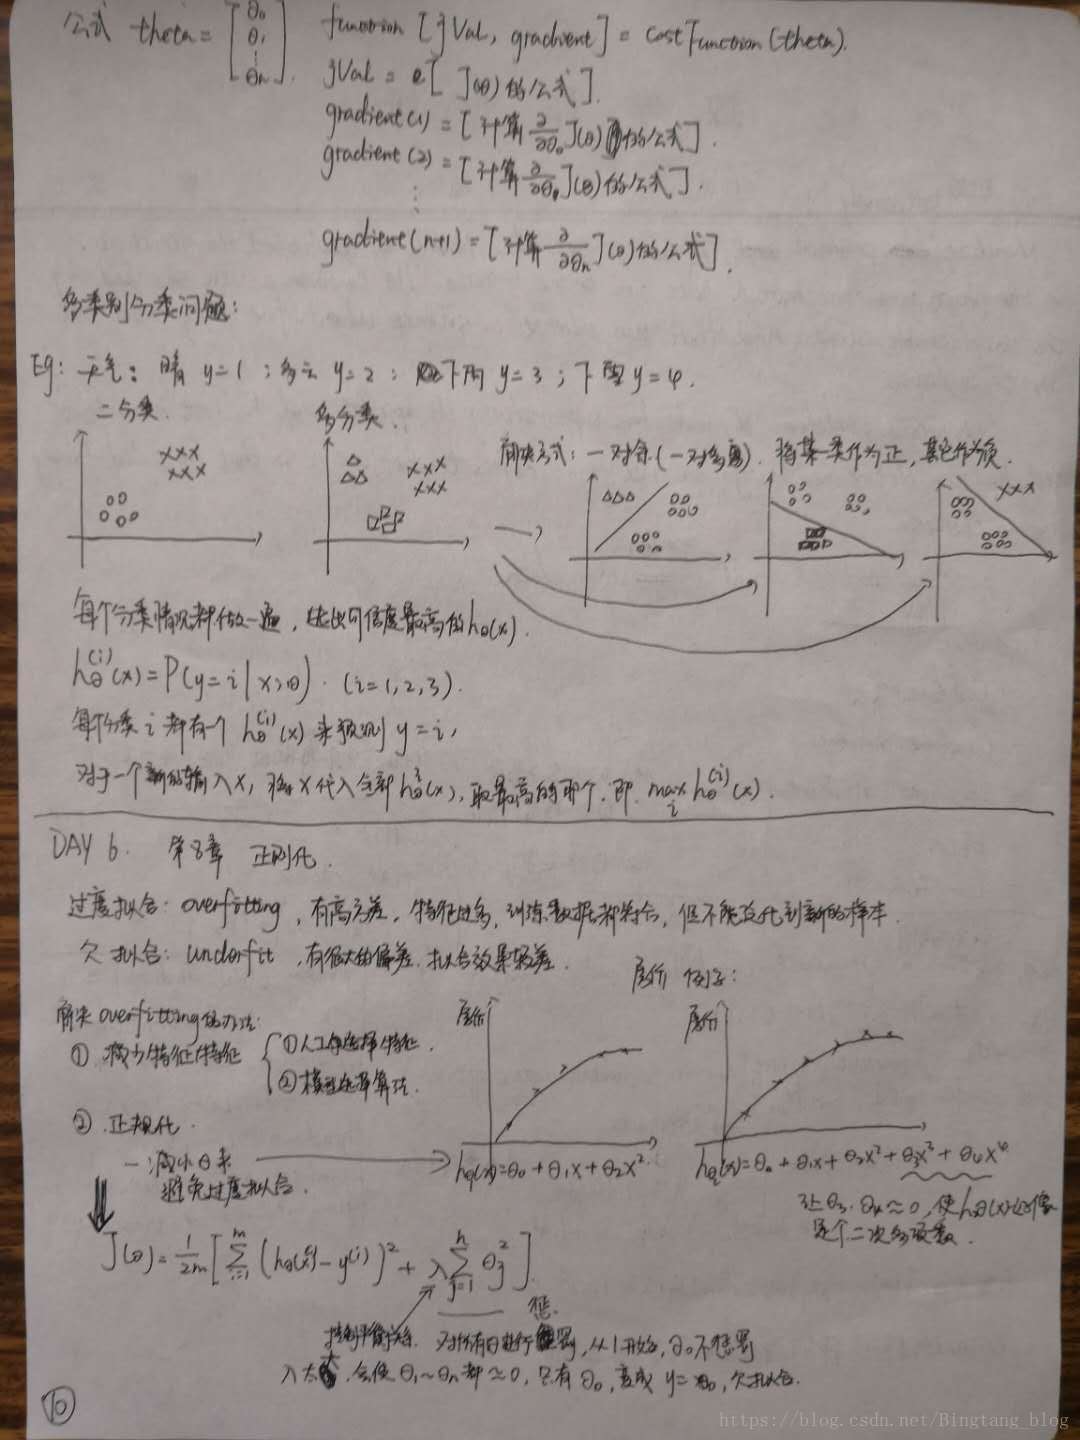 公式 theta = [θ0 θ1 ⋮ θn]. function [jVal, gradient] = costFunction(theta).
jVal = [ J(θ)的公式].
gradient(1) = [计算 ∂/∂θ0 J(θ)的公式].
gradient(2) = [计算 ∂/∂θ1 J(θ)的公式].
⋮
gradient(n+1) = [计算 ∂/∂θn J(θ)的公式].
多类别分类问题:
Eg: 天气: 晴 y=1 ; 多云 y=2 ; 下雨 y=3 ; 下雪 y=4.
二分类. 多分类.
解决方式: 一对余(一对多). 将某一类作为正, 其它作为负.
每个分类情况都做一遍, 选出可信度最高的hθ(x).
hθ^(i)(x) = P(y=i | x;θ). (i=1,2,3).
每个分类 i 都有一个 hθ^(i)(x) 来预测 y=i,
对于一个新的输入x, 将x代入全部hθ^i(x), 取最高的那个. 即. max_i hθ^(i)(x).
DAY 6. 第8章 正则化.
过度拟合: overfitting, 有高方差, 特征过多, 训练数据都符合, 但不能泛化到新的样本.
欠拟合: underfit, 有很大的偏差, 拟合效果较差.
房价 例子:
解决overfitting的办法:
房价 房价
① 减少特征
① 人工选择特征.
② 模型选择算法.
② 正规化.
一减小θ来
避免过度拟合.
hθ(x)=θ0 + θ1x + θ2x²
hθ(x)=θ0 + θ1x + θ2x² + θ3x³ + θ4x⁴
让θ3, θ4≈0, 使hθ(x)好像
是个二次多项式.
J(θ) = 1/2m [ Σ_{i=1}^{m} (hθ(x^(i)) - y^(i))² + λ Σ_{j=1}^{n} θj² ].
惩.
控制平衡关系. 对所有θ进行罚, 从1开始, θ0不惩罚
λ太大, 会使 θ1~θn 都≈0, 只有 θ0, 变成 y=θ0, 欠拟合.
10
https://blog.csdn.net/Bingtang_blog